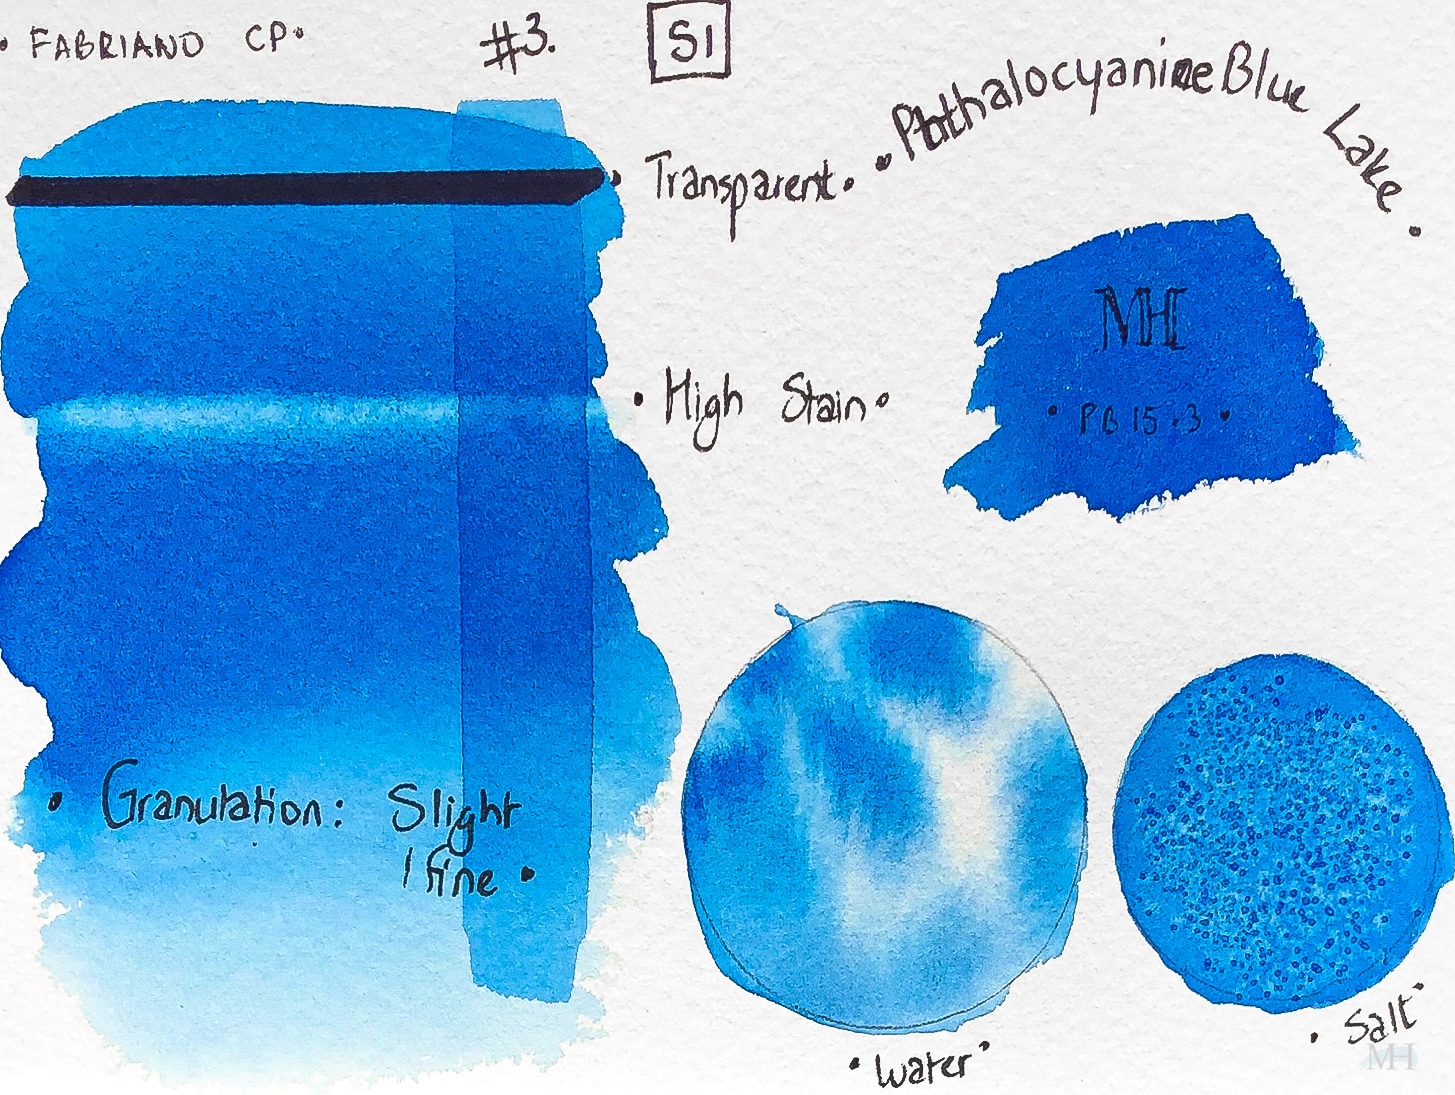 • FABRIANO CP•
#3.
S1
• Phthalocyanine Blue Lake •
• Transparent •
• High Stain •
MH
• PB 15.3 •
• Granulation: Slight
/ fine •
• Water •
• Salt •
MH